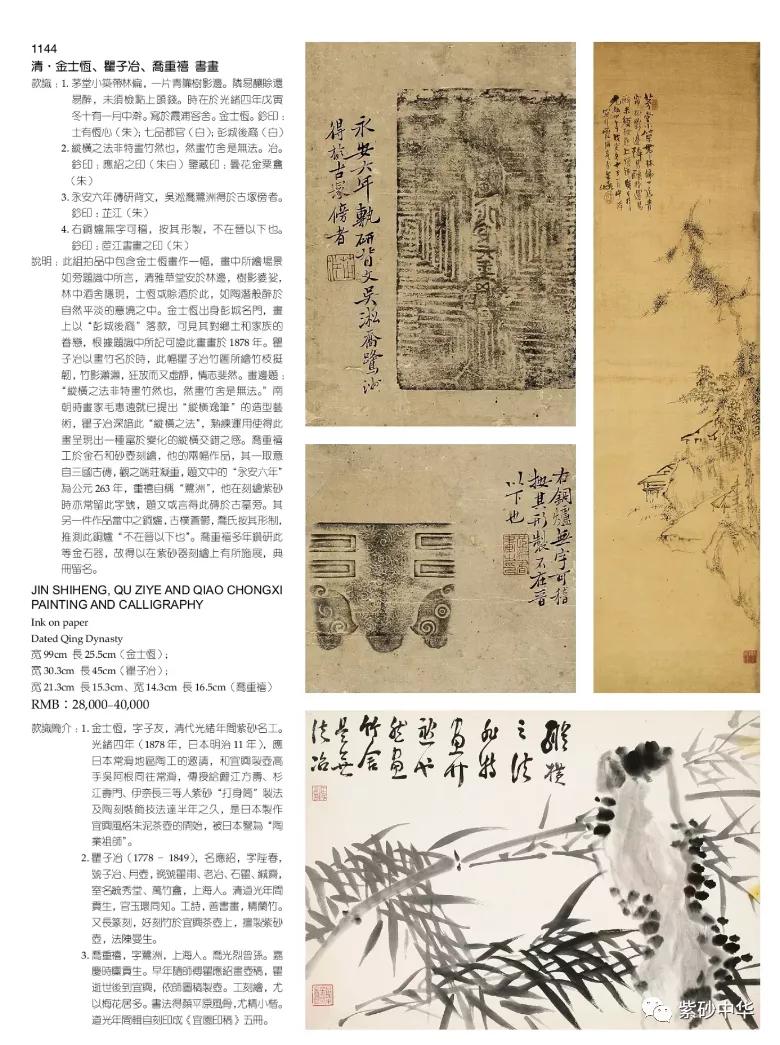 1144
清·金士恆、瞿子冶、喬重禧 書畫
款識：1. 茅堂小築帶林偏，一片青陰樹影邊。隣易釀賒還
易醉，未須檢點上頭錢。時在於光緒四年戊寅
冬十有一月中澣。寫於霞浦客舍。金士恆。鈐印：
士有恆心（朱）；七品都官（白）；彭城後裔（白）
2. 縱橫之法非特畫竹然也，然畫竹舍是無法。冶。
鈐印：應紹之印（朱白） 鑒藏印：曇花金粟盦
（朱）
3. 永安六年磚研背文，吳淞喬鷺洲得於古塚傍者。
鈐印：芷江（朱）
4. 右銅爐無字可稽，按其形製，不在晉以下也。
鈐印：茝江書畫之印（朱）
說明：此組拍品中包含金士恆畫作一幅，畫中所繪場景
如旁題識中所言，清雅草堂安於林邊，樹影婆娑，
林中酒舍隱現，士恆或賒酒於此，如陶潛般醉於
自然平淡的意境之中。金士恆出身彭城名門，畫
上以“彭城後裔”落款，可見其對鄉土和家族的
眷戀，根據題識中所記可證此畫畫於 1878 年。瞿
子冶以畫竹名於時，此幅瞿子冶竹圖所繪竹枝挺
韌，竹影瀟瀟，狂放而又虛靜，情志斐然。畫邊題：
“縱橫之法非特畫竹然也，然畫竹舍是無法。”南
朝時畫家毛惠遠就已提出“縱橫逸筆”的造型藝
術，瞿子冶深諳此“縱橫之法”，熟練運用使得此
畫呈現出一種富於變化的縱橫交錯之感。喬重禧
工於金石和砂壺刻繪，他的兩幅作品，其一取意
自三國古磚，觀之端莊凝重，題文中的“永安六年”
為公元 263 年，重禧自稱“鷺洲”，他在刻繪紫砂
時亦常留此字號，題文或言得此磚於古墓旁。其
另一件作品當中之銅爐，古樸蒼鬱，喬氏按其形制，
推測此銅爐“不在晉以下也”。喬重禧多年鑽研此
等金石器，故得以在紫砂器刻繪上有所施展，典
冊留名。
JIN SHIHENG, QU ZIYE AND QIAO CHONGXI
PAINTING AND CALLIGRAPHY
Ink on paper
Dated Qing Dynasty
寬 99cm 長 25.5cm（金士恆）；
寬 30.3cm 長 45cm（瞿子冶）；
寬 21.3cm 長 15.3cm、寬 14.3cm 長 16.5cm（喬重禧）
RMB：28,000–40,000
款識簡介：1. 金士恆，字子友，清代光緒年間紫砂名工。
光緒四年（1878 年，日本明治 11 年），應
日本常滑地區陶工的邀請，和宜興製壺高
手吳阿根同往常滑，傳授給鯉江方壽、杉
江壽門、伊奈長三等人紫砂“打身筒”製法
及陶刻裝飾技法達半年之久，是日本製作
宜興風格朱泥茶壺的開始，被日本譽為“陶
業祖師”。
2. 瞿子冶（1778 – 1849），名應紹，字陞春，
號子冶、月壺，晚號瞿甫、老冶、石瞿、緘齋，
室名毓秀堂、萬竹盦，上海人。清道光年間
貢生，官玉環同知。工詩，善書畫，精蘭竹。
又長篆刻，好刻竹於宜興茶壺上，擅製紫砂
壺，法陳曼生。
3. 喬重禧，字鷺洲，上海人。喬光烈曾孫。嘉
慶時廩貢生。早年隨師傅瞿應紹畫壺稿，瞿
逝世後到宜興，依師圖稿製壺。工刻繪，尤
以梅花居多。書法得顏平原風骨，尤精小楷。
道光年間輯自刻印成《宜園印稿》五冊。
永安六年甎研背文吳淞喬鷺洲
得於古塚傍者
右銅爐無字可稽
按其形製不在晉
以下也
縱橫
之法
非特
畫竹
然也
然畫
竹舍
是無
法冶
紫砂中华